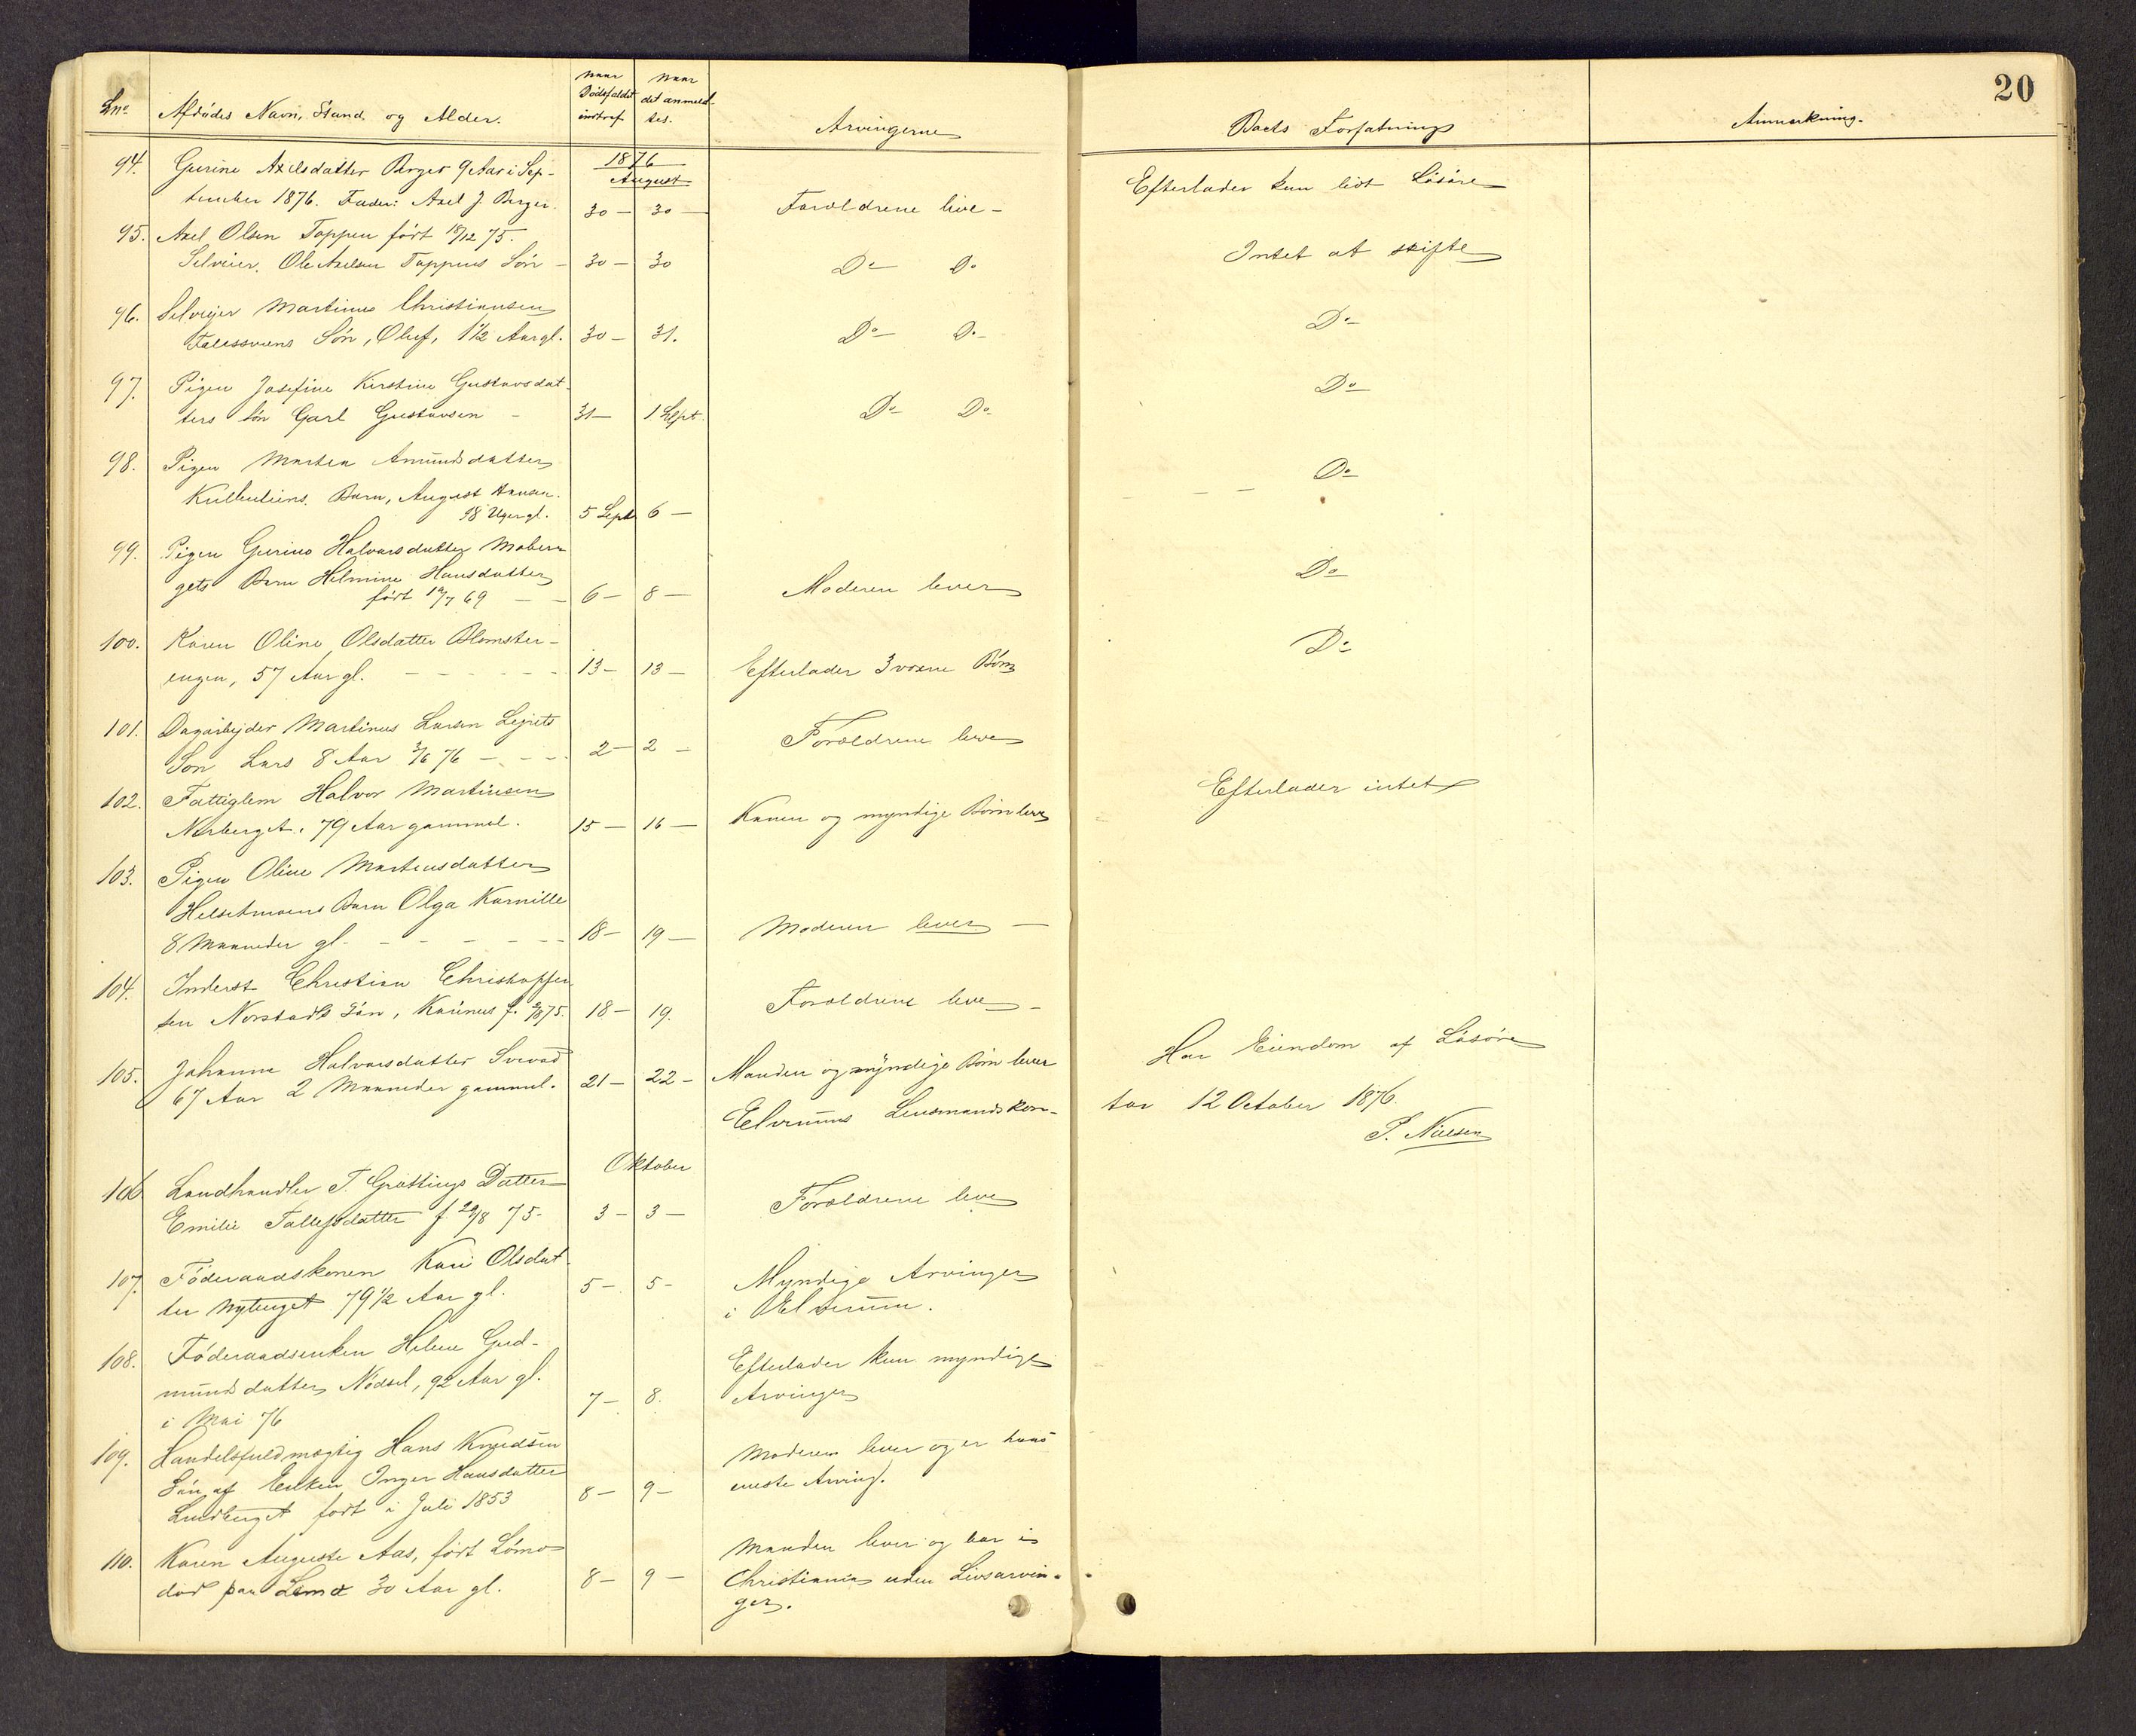 20
Lno
Afdødes Navn, Stand og Alder.
Naar Dødsfaldet indtraf
Naar det anmeldtes.
Arvingerne
Boets Forfatning
Anmærkning.
1876
August
94. Gurine Axelsdatter Berger 9 Aar i Sep-
tember 1876. Fader: Axel J. Berger. 30 — 30 — Forældrene leve — Efterlader kun lidt Løsøre
95. Axel Olsen Toppen født 18/12 75.
Selveier Ole Axelsen Toppens Søn — 30 — 30 Do Do Intet at skifte
96. Selveier Martinus Christiansen
Søn, Oluf, 1 1/2 Aar gl. 30 — 31. Do Do Do
97. Pigen Josefine Kirstine Gustavsdat-
ters Søn Carl Gustavsen — 31 — 1 Sept. Do Do Do
98. Pigen Marthea Amundsdatter
Barn, August Hansen.
18 Uger gl. 5 Septr 6 — Do
99. Pigen Gurine Halvorsdatter Mober-
gets Barn Helmine Hansdatter
født 69 — — 6 — 8 — Moderen lever Do
100. Karen Oline Olsdatter Blomster-
engen, 57 Aar gl. — — — — — 13 — 13 — Efterlader 3 voxne Børn Do
101. Dagarbejder Martinus Larsen Lejrets
Søn Lars 8 Aar 3/6 76 — — — 2 — 2 — Forældrene leve
102. Fattiglem Halvor Martinsen
Norberget. 79 Aar gammel. 15 — 16 — Konen og myndige Børn leve Efterlader intet
103. Pigen Oline Martensdatter
Helsetmoens Barn Olga Kamille
8 Maaneder gl. — — — — — 18 — 19 — Moderen lever —
104. Inderst Christian Christoffer-
sen Norstads Søn, Karinus f. 75. 18 — 19. Forældrene leve —
105. Johanne Halvorsdatter Svevad
67 Aar 2 Maaneder gammel. 21 — 22 — Manden og myndige Børn lever Har Eiendom af Løsøre
Elverums Lensmandskon- tor 12 October 1876.
P. Nielsen
Oktober
106 Landhandler T. Grøttings Datter
Emilie Tollefsdatter f 29/8 75. 3 — 3 — Forældrene leve
107. Føderaadskonen Kari Olsdat-
ter Nyberget 79 1/2 Aar gl. 5 — 5 — Myndige Arvinger
i Elverum.
108. Føderaadsenken Helene Gud-
mundsdatter Nødsel, 92 Aar gl.
i Mai 76 7 — 8. Efterlader kun myndige
Arvinger
109. Handelsfuldmægtig Hans Knudsen
Søn af Enken Inger Hansdatter
Lindberget født i Juli 1853 8 — 9 — Moderen lever og er hans
eneste Arving.
110. Karen Auguste Aas, født Lömo
död paa Lömo 30 Aar gl. 8 — 9 — Manden lever og bor i
Christiania uden Livsarvin-
ger.